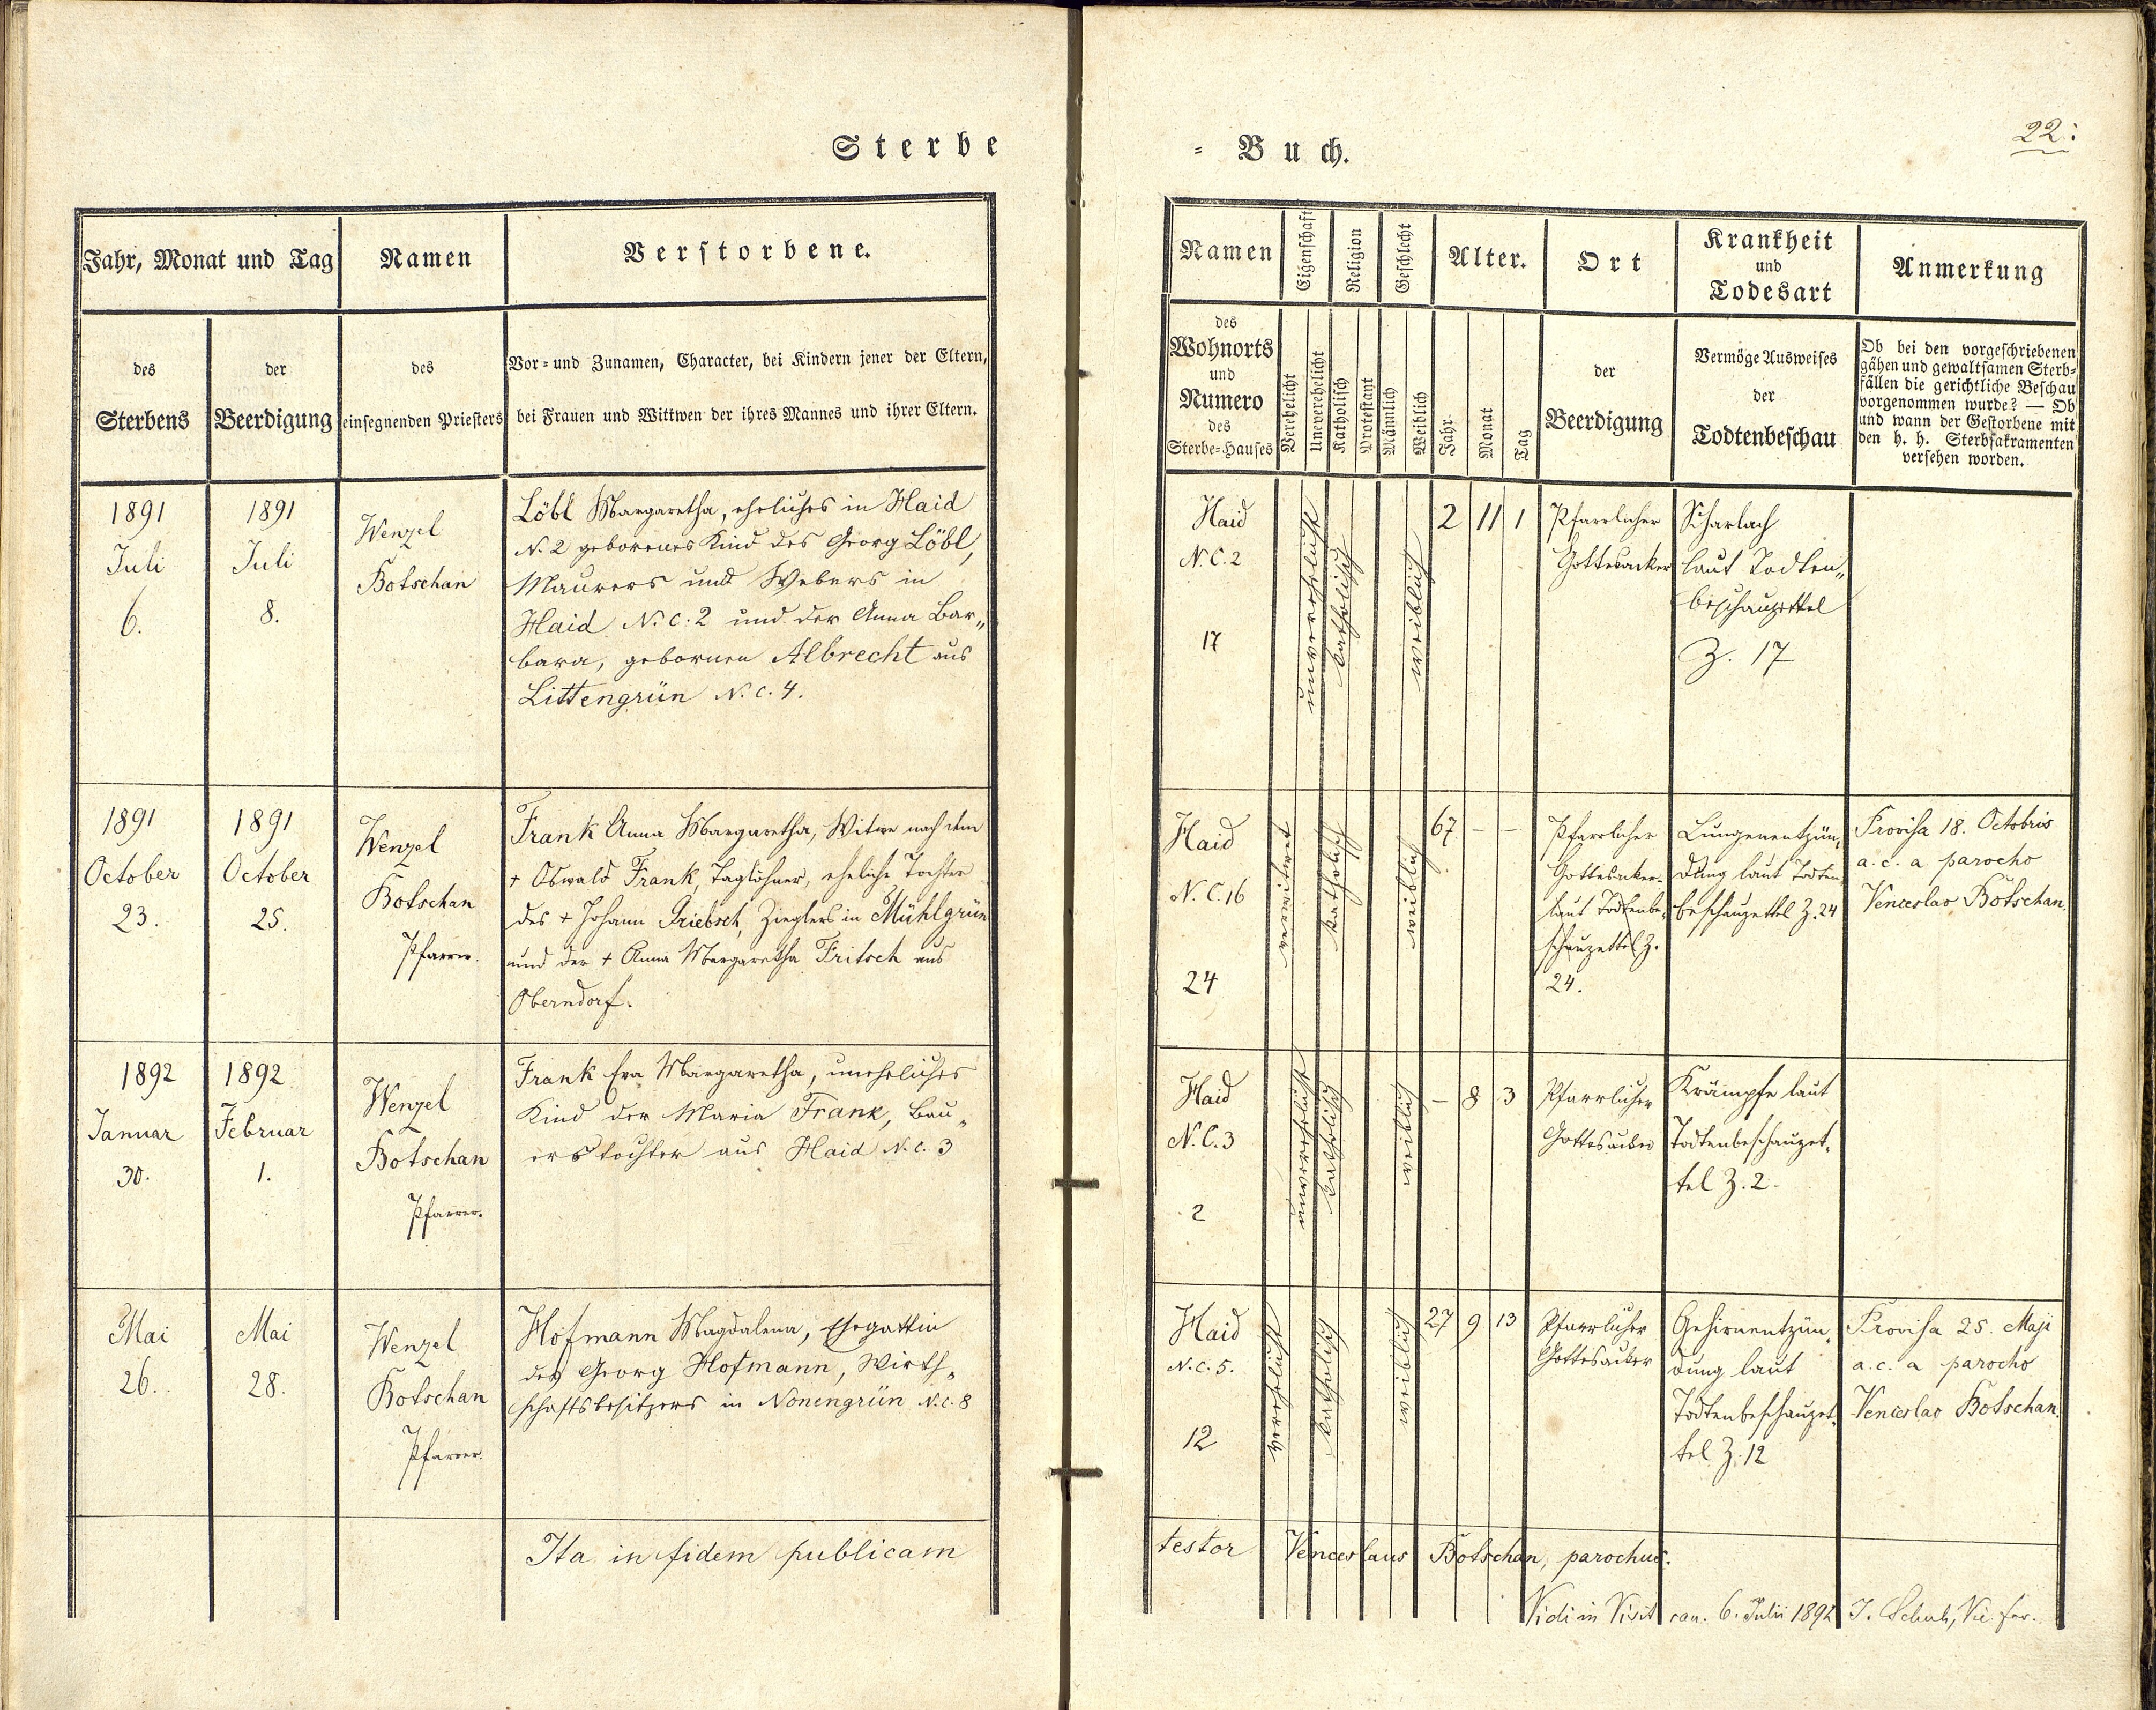 Sterbe
Jahr, Monat und Tag
Namen
Verstorbene.
des
Sterbens
der
Beerdigung
des
einsegnenden Priesters
Vor- und Zunamen, Character, bei Kindern jener der Eltern,
bei Frauen und Wittwen der ihres Mannes und ihrer Eltern.
1891
Juli
6.
1891
Juli
8.
Wenzel
Botschan
Löbl Margaretha, eheliches in Haid
N. 2 geborenes Kind des Georg Löbl,
Maurers und Webers in
Haid N. C: 2 und der Anna Bar„
bara, gebornen Albrecht aus
Littengrün N. C. 4.
1891
October
23.
1891
October
25.
Wenzel
Botschan
Pfarrer.
Frank Anna Margaretha, Witwe nach dem
+ Oswald Frank, Taglöhner, eheliche Tochter
des + Johann Triebsch, Zieglers in Mühlgrün
und der + Anna Margaretha Fritsch aus
Oberndorf.
1892
Januar
30.
1892
Februar
1.
Wenzel
Botschan
Pfarrer.
Frank Eva Margaretha, uneheliches
Kind der Maria Frank, Bau„
erstochter aus Haid N. C. 3
Mai
26.
Mai
28.
Wenzel
Botschan
Pfarrer.
Hofmann Magdalena, Ehegattin
des Georg Hofmann, Wirth„
schaftsbesitzers in Nonengrün N. C. 8
Ita in fidem publicam
= Buch.
22.
Namen
Eigenschaft
Religion
Geschlecht
Alter.
Ort
Krankheit
und
Todesart
Anmerkung
des
Wohnorts
und
Numero
des
Sterbe-Hauses
Verehelicht
Unverehelicht
Katholisch
Protestant
Männlich
Weiblich
Jahr
Monat
Tag
der
Beerdigung
Vermöge Ausweises
der
Todtenbeschau
Ob bei den vorgeschriebenen
gähen und gewaltsamen Sterb-
fällen die gerichtliche Beschau
vorgenommen wurde? — Ob
und wann der Gestorbene mit
den h. h. Sterbsakramenten
versehen worden.
Haid
N. C. 2
17
unverehelicht
katholisch
weiblich
2 11 1
Pfarrlicher
Gottesacker
Scharlach
laut Todten„
beschauzettel
Z. 17
Haid
N. C. 16
24
verwitwet
katholisch
weiblich
67 - -
Pfarrlicher
Gottesaker
laut Todtenbe„
schauzettel Z.
24.
Lungenentzün„
dung laut Todten
beschauzettel Z. 24
Provisa 18. Octobris
a. c. a parocho
Venceslao Botschan.
Haid
N. C. 3
2
unverehelicht
katholisch
weiblich
- 8 3
Pfarrlicher
Gottesacker
Krämpfe laut
Todtenbeschauzet„
tel Z. 2.
Haid
N. C. 5.
12
verehelicht
katholisch
weiblich
27 9 13
Pfarrlicher
Gottesacker
Gehirnentzün„
dung laut
Todtenbeschauzet„
tel Z. 12
Provisa 25. Maji
a. c. a parocho
Venceslao Botschan.
testor Venceslaus Botschan, parochus.
Vidi in Visit. can. 6. Julii 1892 J. Schuh, Vic. for.